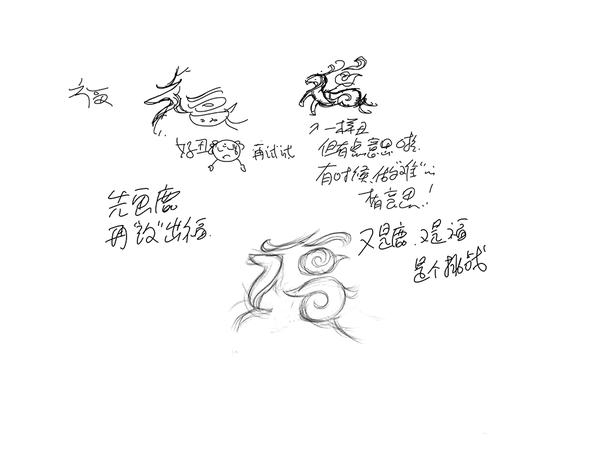 福
好丑
再试试
↗一样丑
但有点意思啦
有时候,做"难"…
有意思!
先画鹿
再"改"出福.
又是鹿,又是福
是个挑战